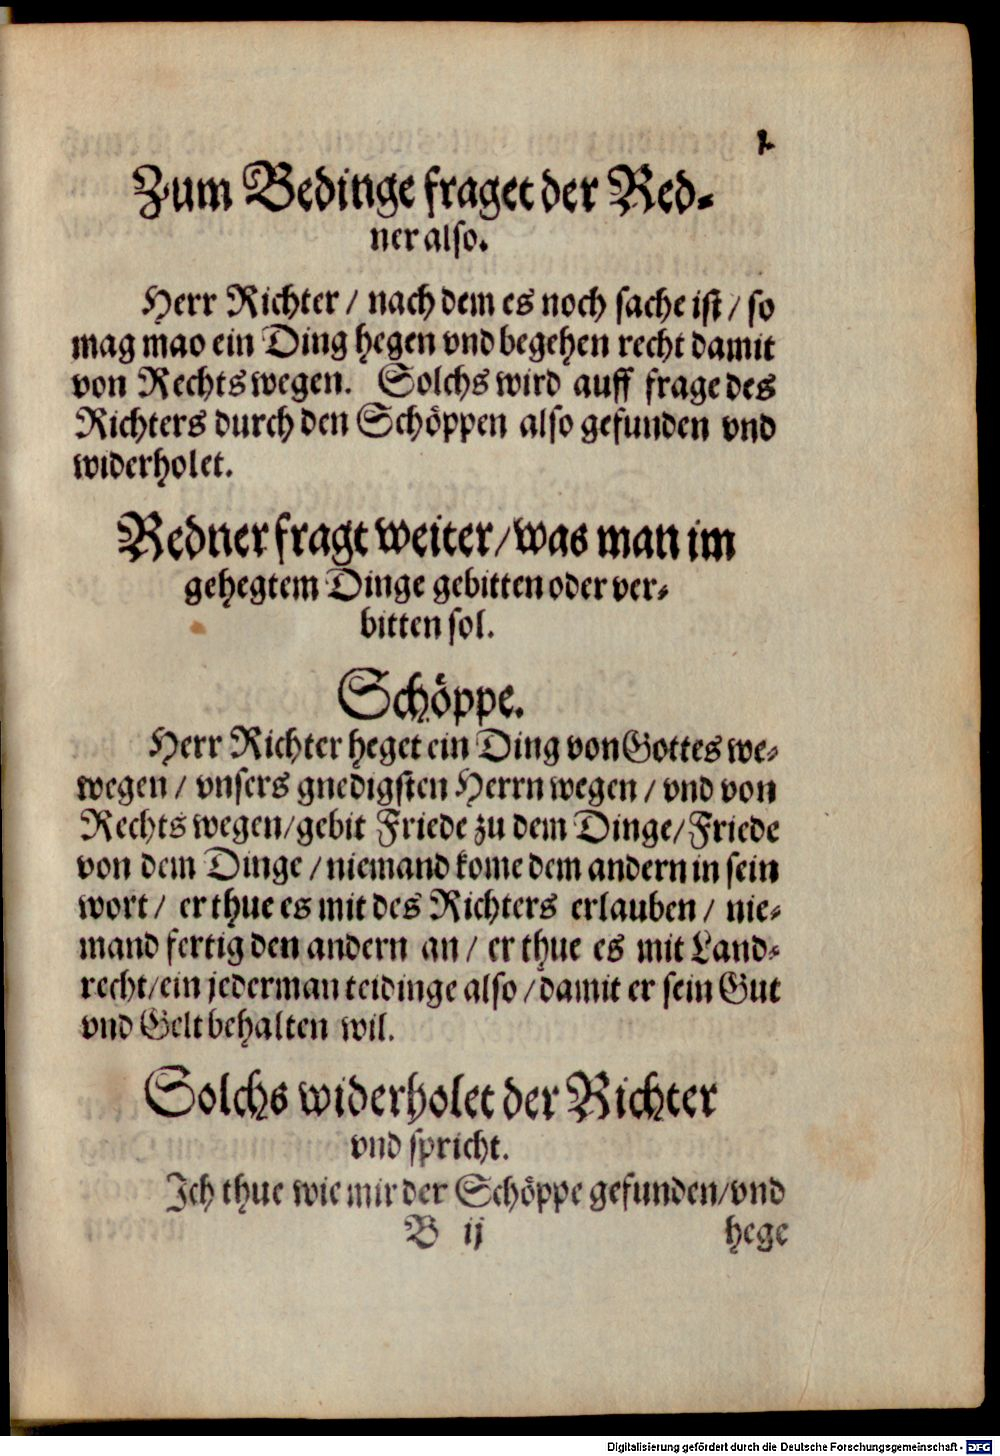 Zum Bedinge fraget der Red-
ner also.
Herr Richter / nach dem es noch sache ist / so
mag mao ein Ding hegen vnd begehen recht damit
von Rechts wegen. Solchs wird auff frage des
Richters durch den Schöppen also gefunden vnd
widerholet.
Redner fragt weiter / was man im
gehegtem Dinge gebitten oder ver-
bitten sol.
Schöppe.
Herr Richter heget ein Ding von Gottes we-
wegen / vnsers gnedigsten Herrn wegen / vnd von
Rechts wegen / gebit Friede zu dem Dinge / Friede
von dem Dinge / niemand kome dem andern in sein
wort / er thue es mit des Richters erlauben / nie-
mand fertig den andern an / er thue es mit Land-
recht / ein jederman teidinge also / damit er sein Gut
vnd Gelt behalten wil.
Solchs widerholet der Richter
vnd spricht.
Ich thue wie mir der Schöppe gefunden / vnd
B ij hege
Digitalisierung gefördert durch die Deutsche Forschungsgemeinschaft - DFG